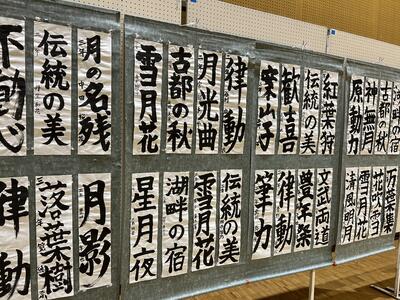 不動心
伝統の美
月の名残
雪月花
古都の秋
月光曲
律動
案山子
歓喜
伝統の美
紅葉狩
原動力
神無月
古都の秋
湖畔の宿
律動
落葉樹
月影
星月夜
湖畔の宿
雪月花
伝統の美
筆力
律動
豊年祭
文武両道
清風明月
雪月花
花吹雪
万葉集